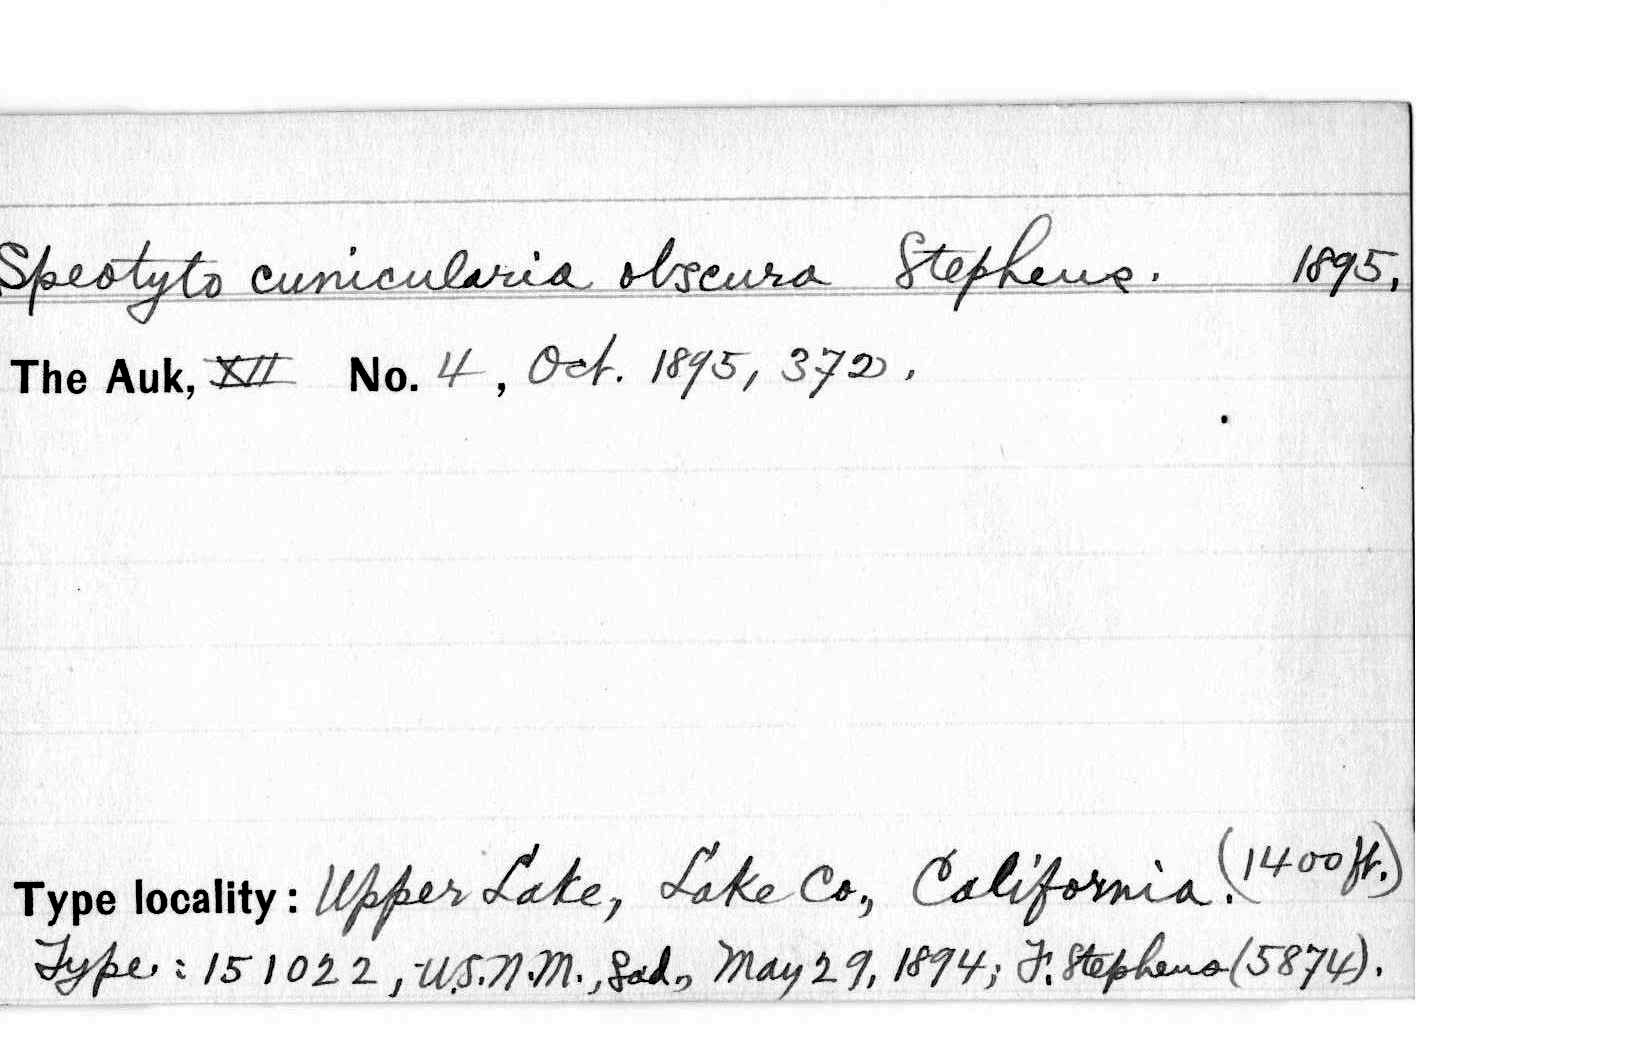 Speotyto cunicularia obscura Stephens. 1895.
The Auk, XII No. 4, Oct. 1895, 372.
Type locality: Upper Lake, Lake Co., California. (1400 ft.)
Type: 151022, U.S.N.M., ad., May 29, 1894; F. Stephens (5874).